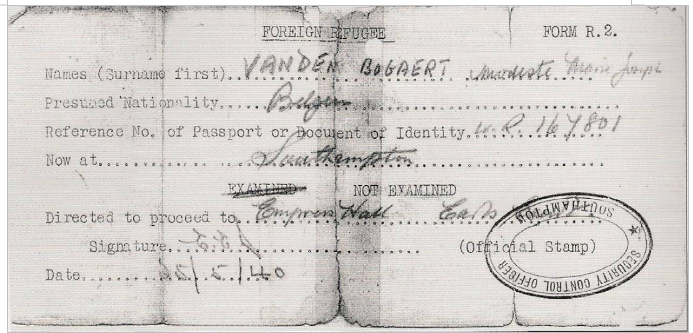 FOREIGN REFUGEE FORM R.2.
Names (Surname first)..VANDEN BOGAERT Modeste Marie Joseph
Presumed Nationality.....Belgian
Reference No. of Passport or Document of Identity. W.R. 167801
Now at..........Southampton
EXAMINED NOT EXAMINED
Directed to proceed to. Empress Hall Earls
Signature...
(Official Stamp)
Date.... /5/40
SECURITY CONTROL OFFICER
SOUTHAMPTON